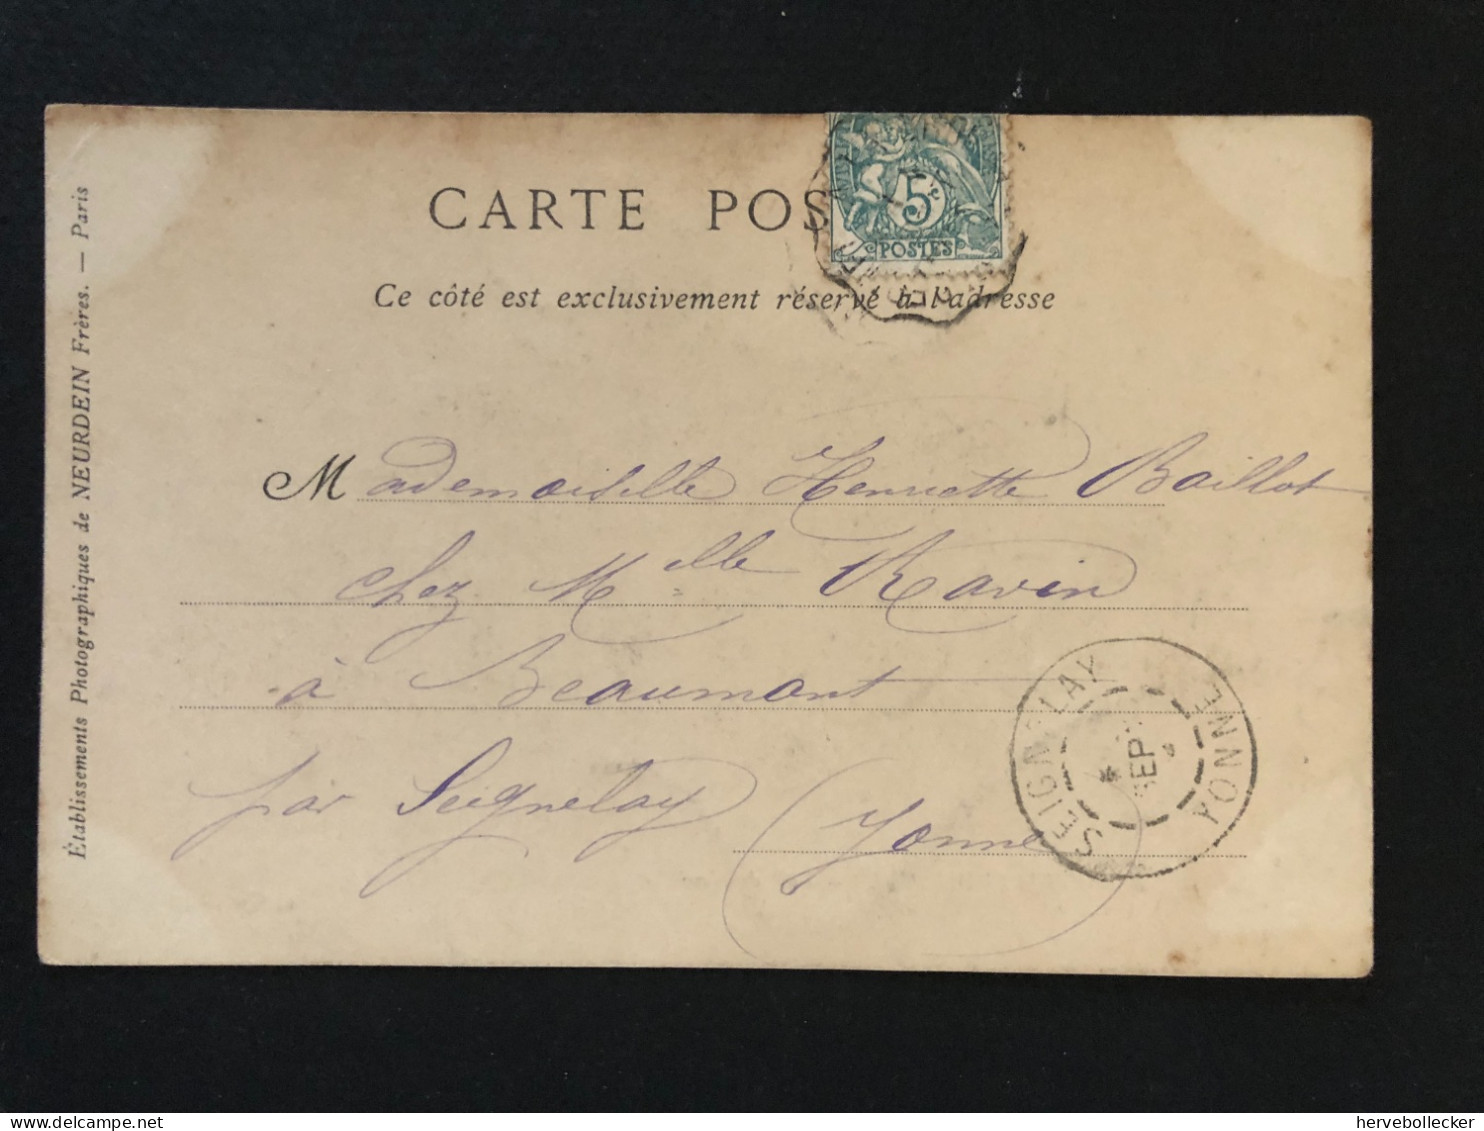 CARTE POS
5
POSTES
Ce côté est exclusivement réservé à l'adresse
Établissements Photographiques de NEURDEIN Frères. — Paris
Mademoiselle Henriette Baillot
chez Mlle Ravin
à Beaumont
par Seignelay (Yonne)
SEIGNELAY
SEPT
YONNE
hervebollecker